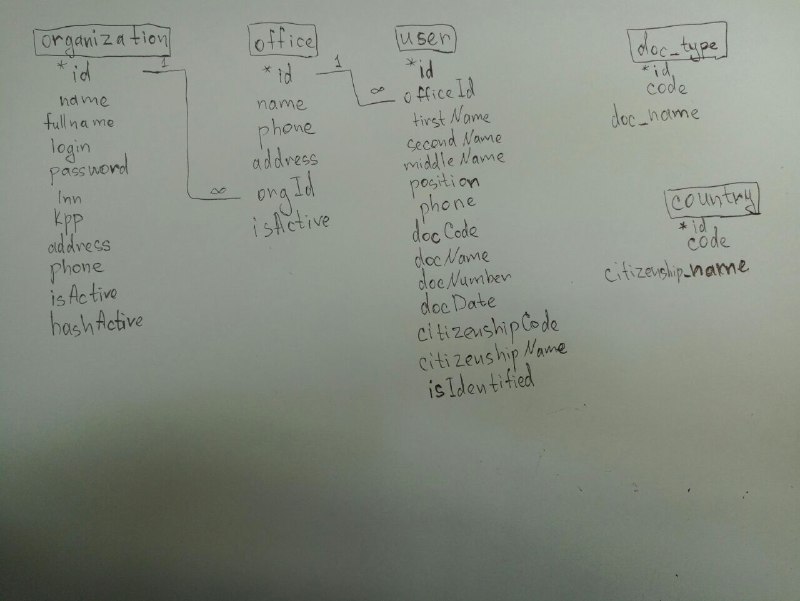 organization
* id
name
fullname
login
password
Inn
kpp
address
phone
isActive
hashActive
1
∞
office
* id
name
phone
address
orgId
isActive
1
∞
user
* id
officeId
firstName
secondName
middleName
position
phone
docCode
docName
docNumber
docDate
citizenshipCode
citizenshipName
isIdentified
doc_type
* id
code
doc_name
country
* id
code
citizenship_name